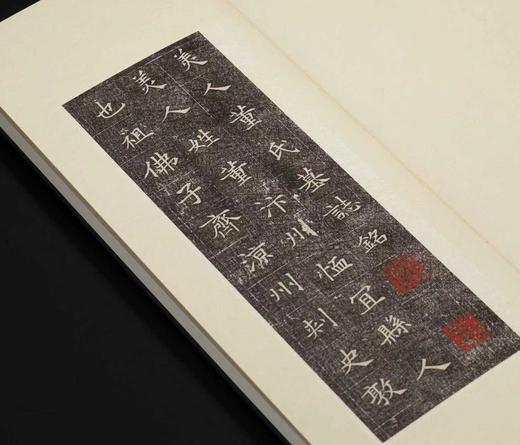 美人董氏墓誌銘
美人姓董汴州恤宜縣人
也祖佛子齊涼州刺史敦